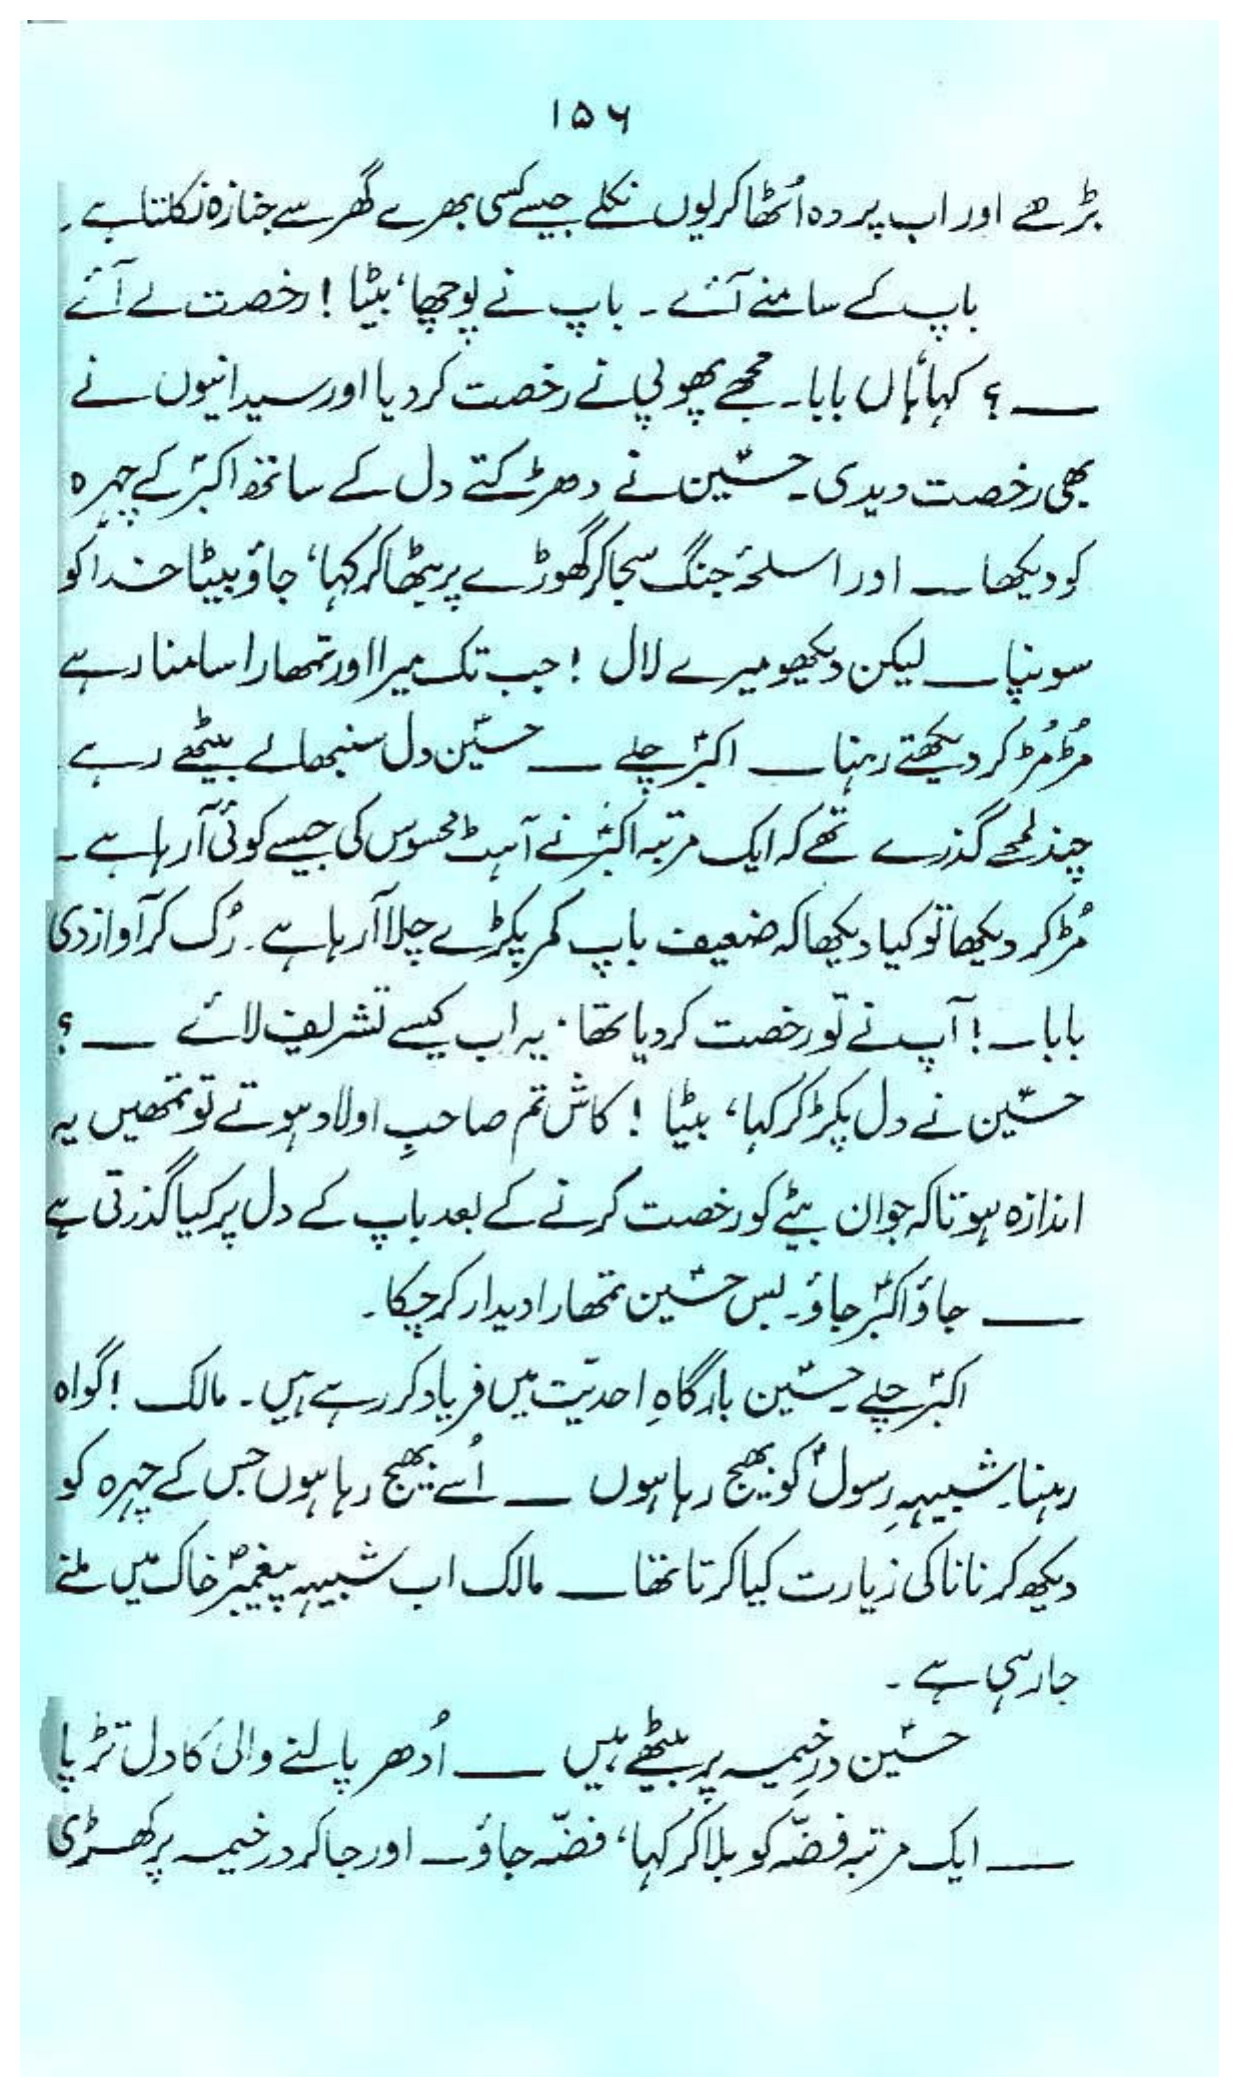 ۱۵۶
بڑھے اور اب پردہ اُٹھا کر یوں نکلے جیسے کسی بھرے گھر سے جنازہ نکلتا ہے۔
باپ کے سامنے آئے۔ باپ نے پوچھا، بیٹا! رخصت لے آئے
ــــ؟ کہا ہاں بابا۔ مجھے پھوپی نے رخصت کر دیا اور سیدانیوں نے
بھی رخصت دیدی۔ حسینؑ نے دھڑکتے دل کے ساتھ اکبرؑ کے چہرہ
کو دیکھا ــ اور اسلحۂ جنگ سجا کر گھوڑے پر بٹھا کر کہا، جاؤ بیٹا خدا کو
سونپا ــ لیکن دیکھو میرے لال! جب تک میرا اور تمھارا سامنا رہے
مُڑ مُڑ کر دیکھتے رہنا ــ اکبرؑ چلے ــ حسینؑ دل سنبھالے بیٹھے رہے
چند لمحے گذرے تھے کہ ایک مرتبہ اکبرؑ نے آہٹ محسوس کی جیسے کوئی آ رہا ہے۔
مُڑ کر دیکھا تو کیا دیکھا کہ ضعیف باپ کمر پکڑے چلا آ رہا ہے۔ رُک کر آواز دی
بابا ــ! آپ نے تو رخصت کر دیا تھا۔ یہ اب کیسے تشریف لائے ــــ؟
حسینؑ نے دل پکڑ کر کہا، بیٹا! کاش تم صاحبِ اولاد ہوتے تو تمھیں یہ
اندازہ ہوتا کہ جوان بیٹے کو رخصت کرنے کے بعد باپ کے دل پر کیا گذرتی ہے
ــــ جاؤ اکبرؑ جاؤ۔ بس حسینؑ تمھارا دیدار کر چکا۔
اکبرؑ چلے۔ حسینؑ بارگاہِ احدیّت میں فریاد کر رہے ہیں۔ مالک! گواہ
رہنا۔ شبیہہِ رسولؐ کو بھیج رہا ہوں ــــ اُسے بھیج رہا ہوں جس کے چہرہ کو
دیکھ کر نانا کی زیارت کیا کرتا تھا ــ مالک اب شبیہہِ پیغمبرؐ خاک میں ملنے
جا رہی ہے۔
حسینؑ درِ خیمہ پر بیٹھے ہیں ــــ اُدھر پالنے والی کا دل تڑپا
ــــ ایک مرتبہ فضّہ کو بلا کر کہا، فضّہ جاؤ ــ اور جا کر در خیمہ پر کھڑی